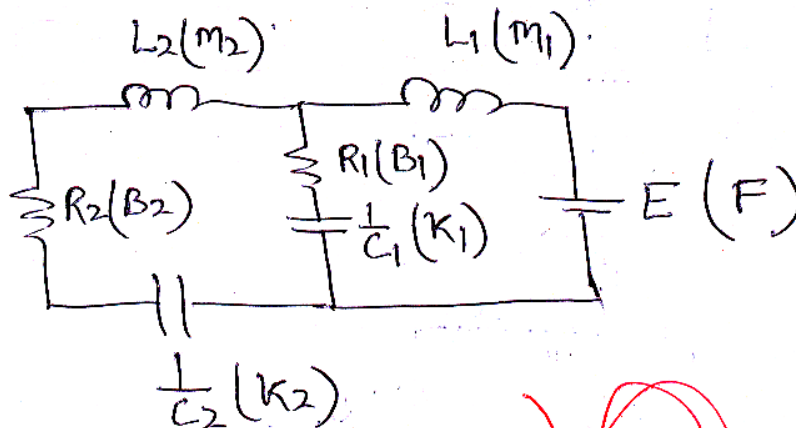 L2(M2) L1(M1)
R1(B1)
R2(B2) 1/C1 (K1) E (F)
1/C2 (K2)